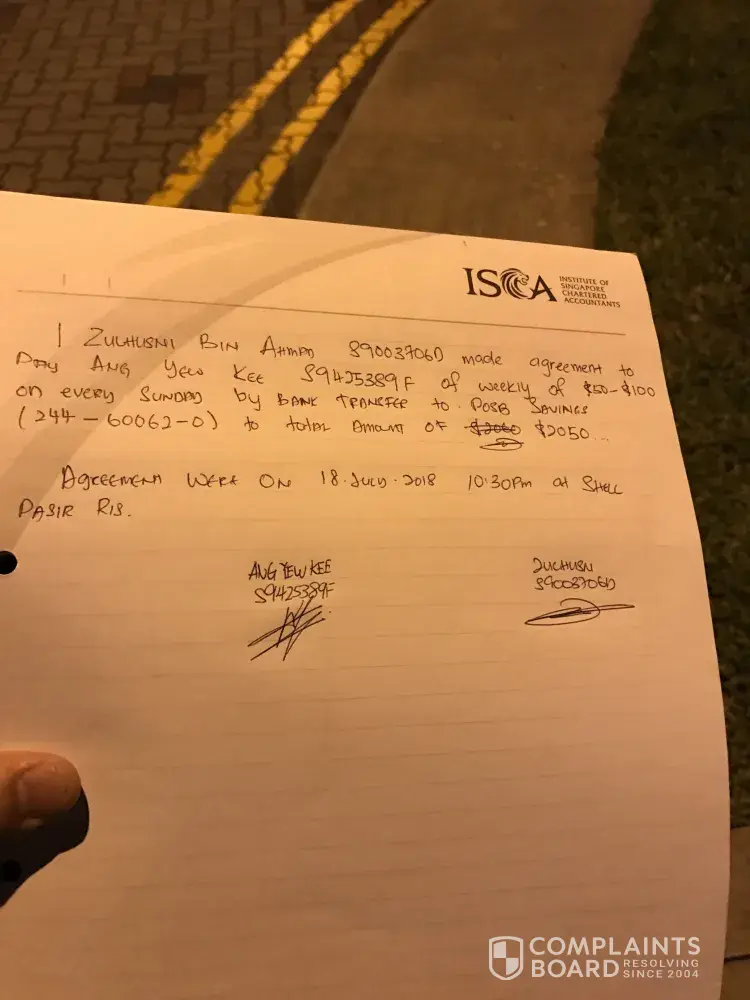 ISCA
INSTITUTE OF
SINGAPORE
CHARTERED
ACCOUNTANTS
I ZULHUSNI BIN AHMAD S9003706D made agreement to
Pay ANG YEW KEE S9425389F of weekly of $50-$100
on every SUNDAY by BANK TRANSFER to POSB SAVINGS
(244-60062-0) to total AMOUNT OF $2050...
AGREEMENT WERE ON 18.JULY.2018 10:30PM at SHELL
PASIR RIS.
ANG YEW KEE
S9425389F
ZULHUSNI
S9003706D
COMPLAINTS
BOARD RESOLVING
SINCE 2004